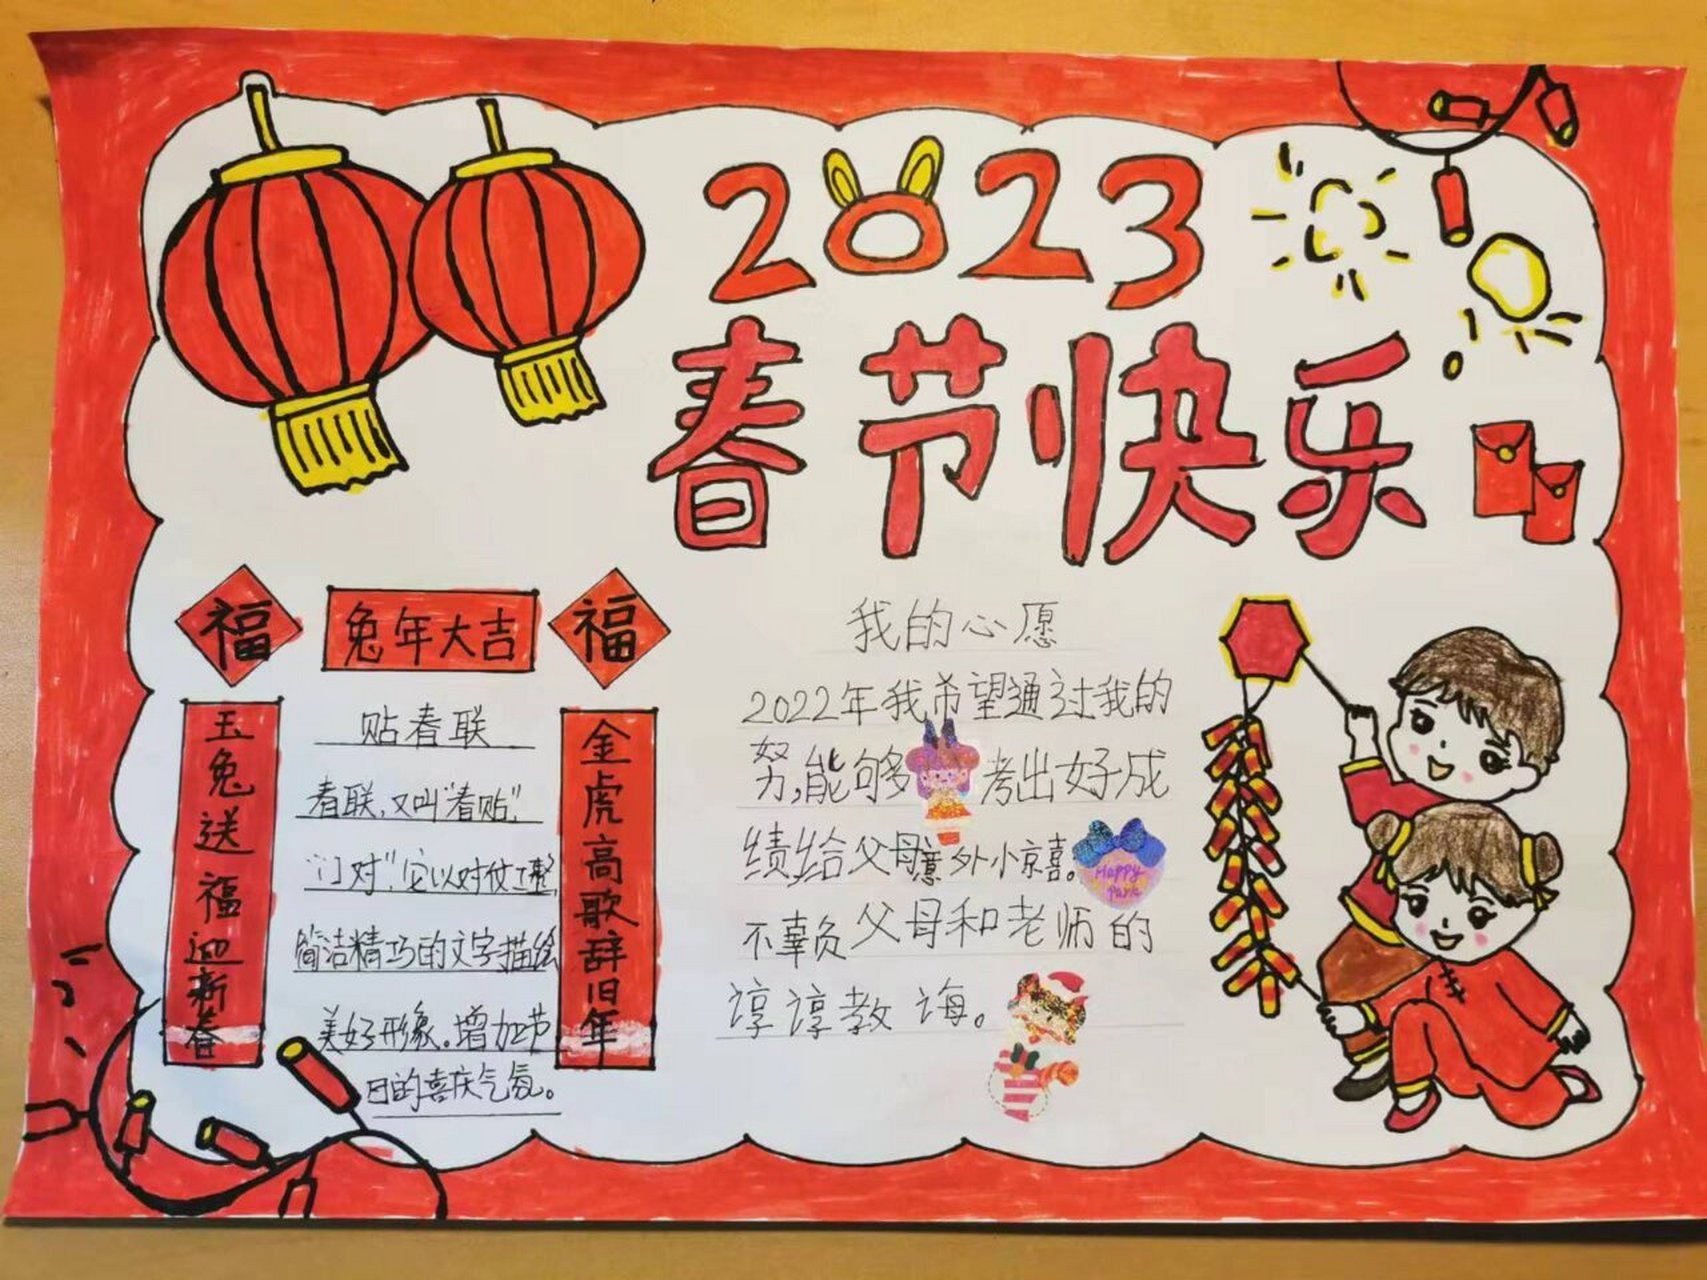 2023
春节快乐
福
兔年大吉
福
玉兔送福迎新春
金虎高歌辞旧年
贴春联
春联,又叫“春贴”
“门对”,它以对仗工整
简洁精巧的文字描绘
美好形象。增加节
日的喜庆气氛。
我的心愿
2022年我希望通过我的
努,能够考出好成
绩给父母意外小京喜。
不辜负父母和老师的
谆谆教诲。
Happy
Park